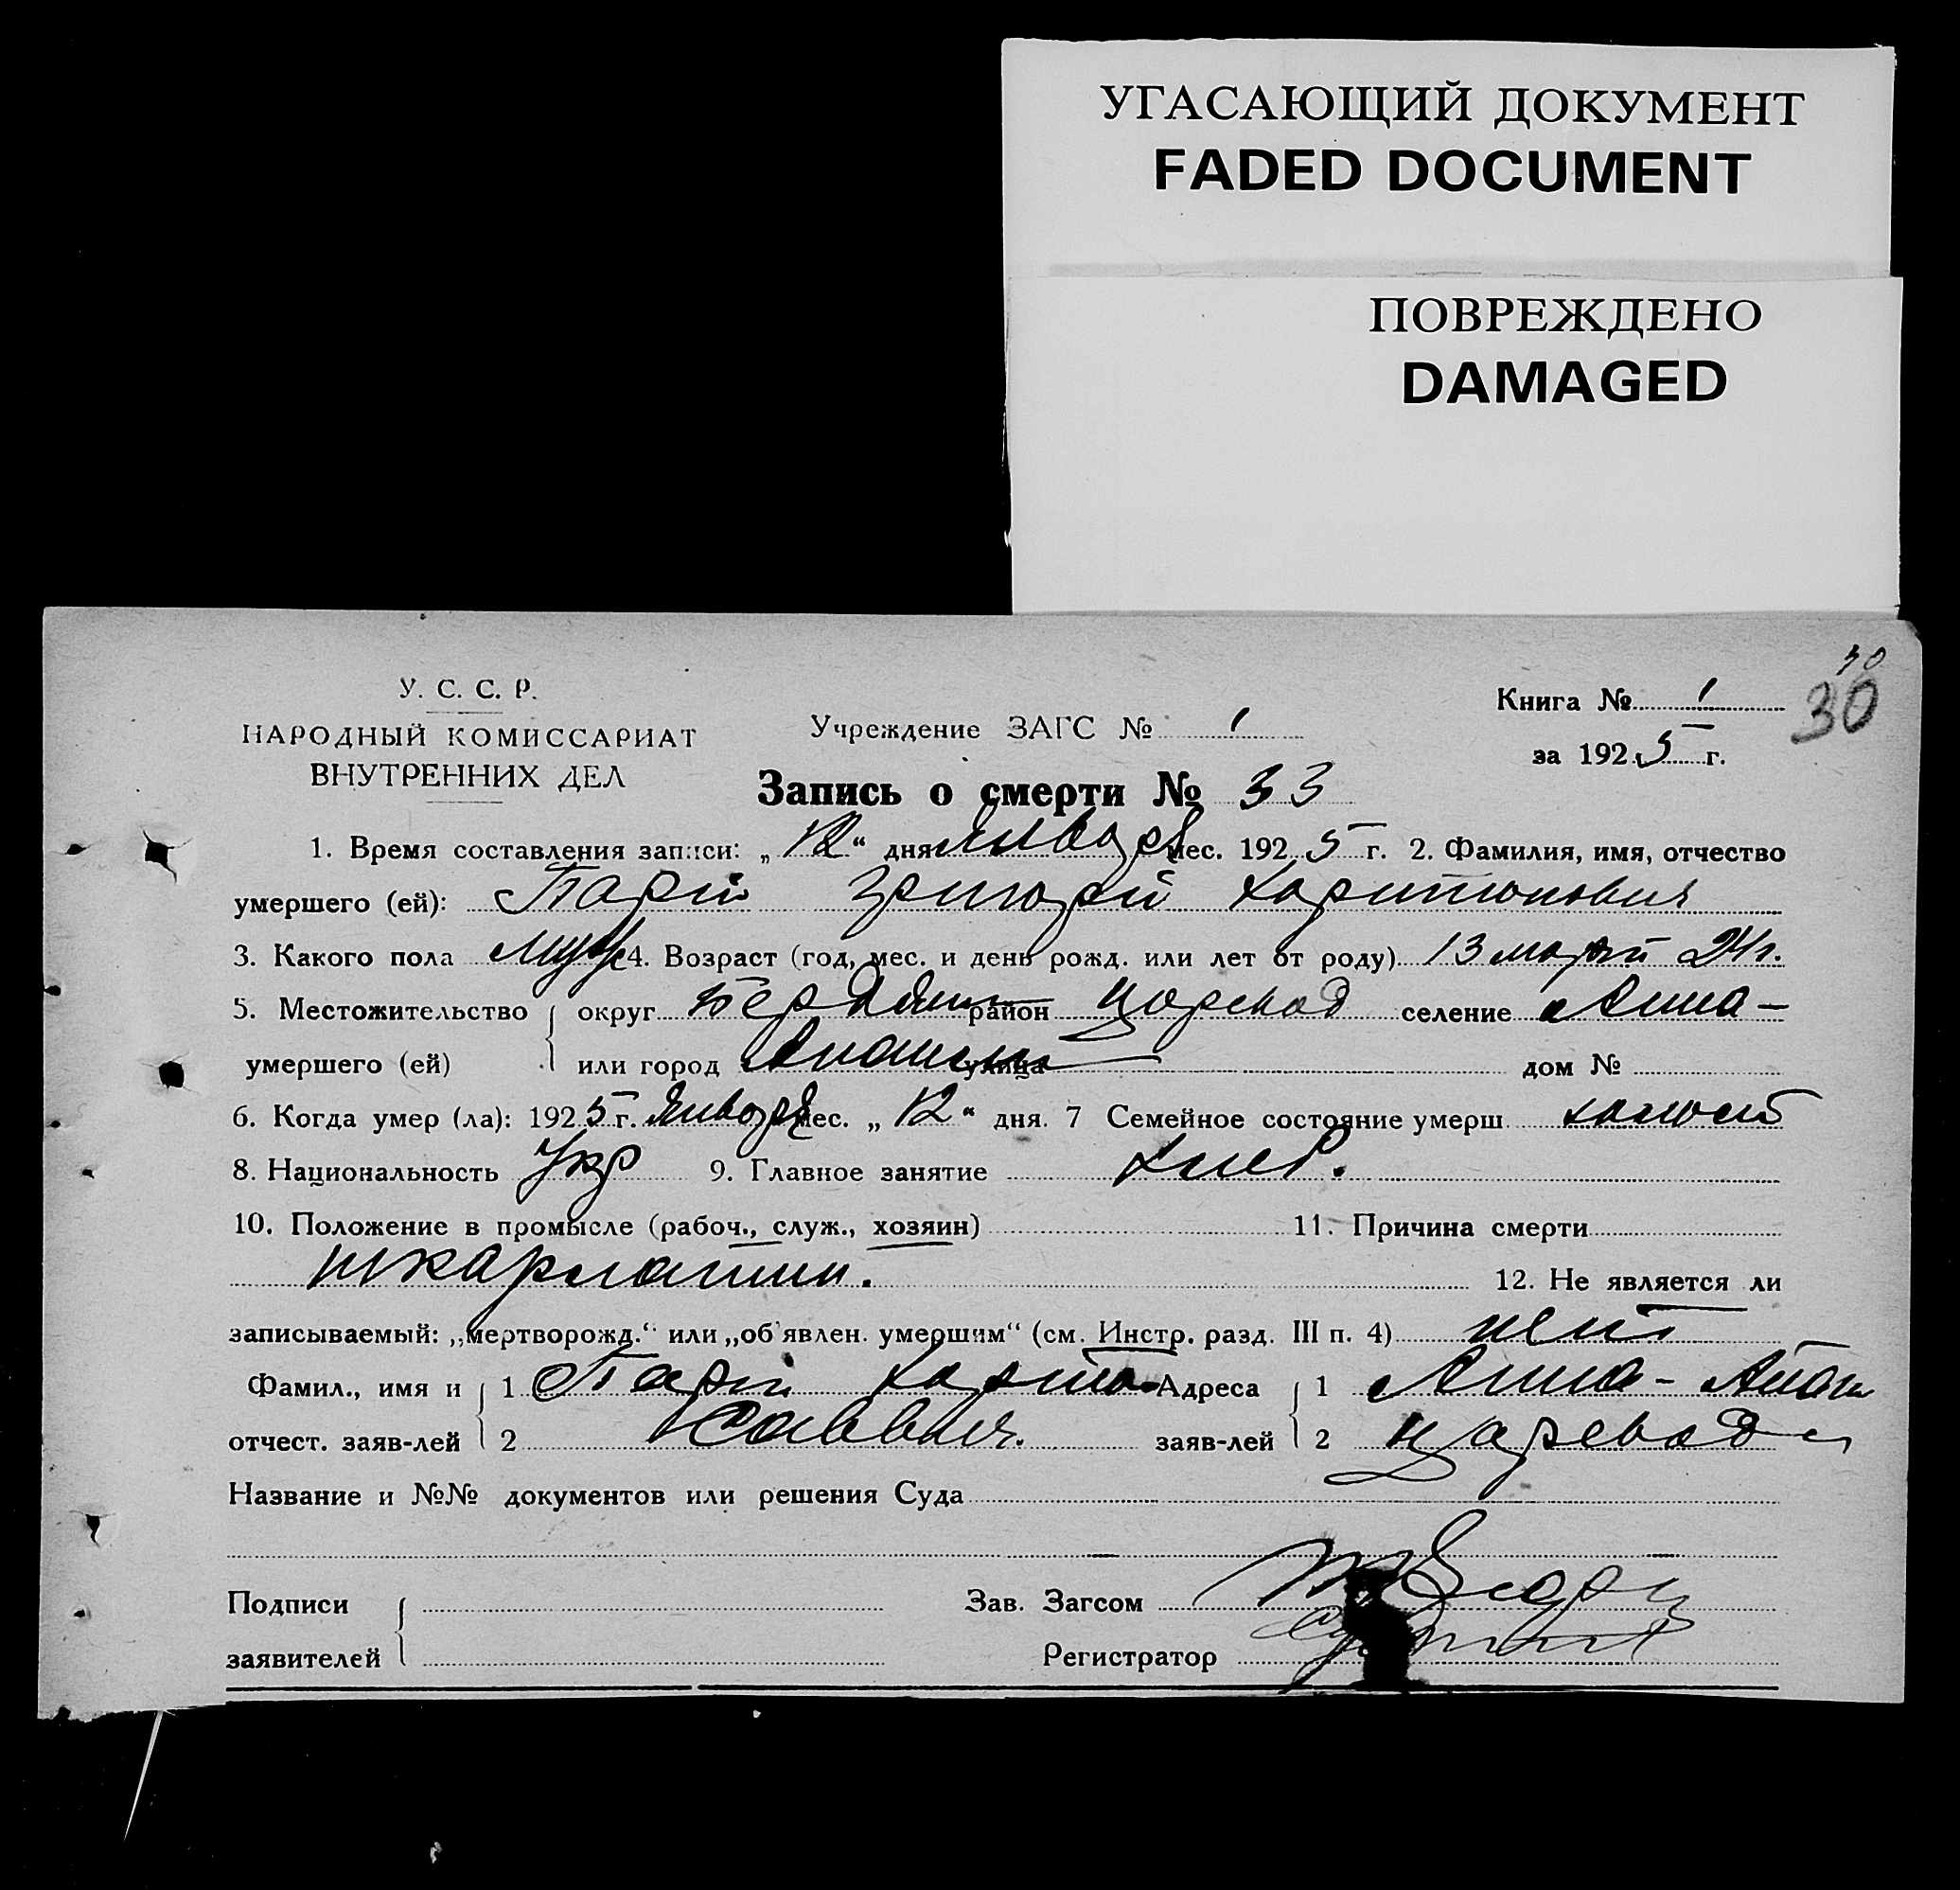 УГАСАЮЩИЙ ДОКУМЕНТ
FADED DOCUMENT
ПОВРЕЖДЕНО
DAMAGED
30
30
У. С. С. Р.
НАРОДНЫЙ КОМИССАРИАТ
ВНУТРЕННИХ ДЕЛ
Учреждение ЗАГС № 1
Книга № 1
за 1925 г.
Запись о смерти № 33
1. Время составления записи: „12“ дня Января мес. 1925 г. 2. Фамилия, имя, отчество
умершего (ей): Парій Григорій Харитонович
3. Какого пола муж 4. Возраст (год, мес. и день рожд. или лет от роду) 13 марта 24 г.
5. Местожительство округ Бердянск район Царевод селение Анно-
умершего (ей) или город улица дом №
6. Когда умер (ла): 1925 г. Января мес. „12“ дня. 7 Семейное состояние умерш. холост
8. Национальность Укр 9. Главное занятие хлеб.
10. Положение в промысле (рабоч., служ., хозяин) 11. Причина смерти
шкарлатин. 12. Не является ли
записываемый: „мертворожд.“ или „об'явлен. умершим“ (см. Инстр. разд. III п. 4) нет
Фамил., имя и 1 Парій Харито Адреса 1 Анно-
отчест. заяв-лей 2 Саввич. заяв-лей 2
Название и №№ документов или решения Суда
Подписи Зав. Загсом
заявителей Регистратор